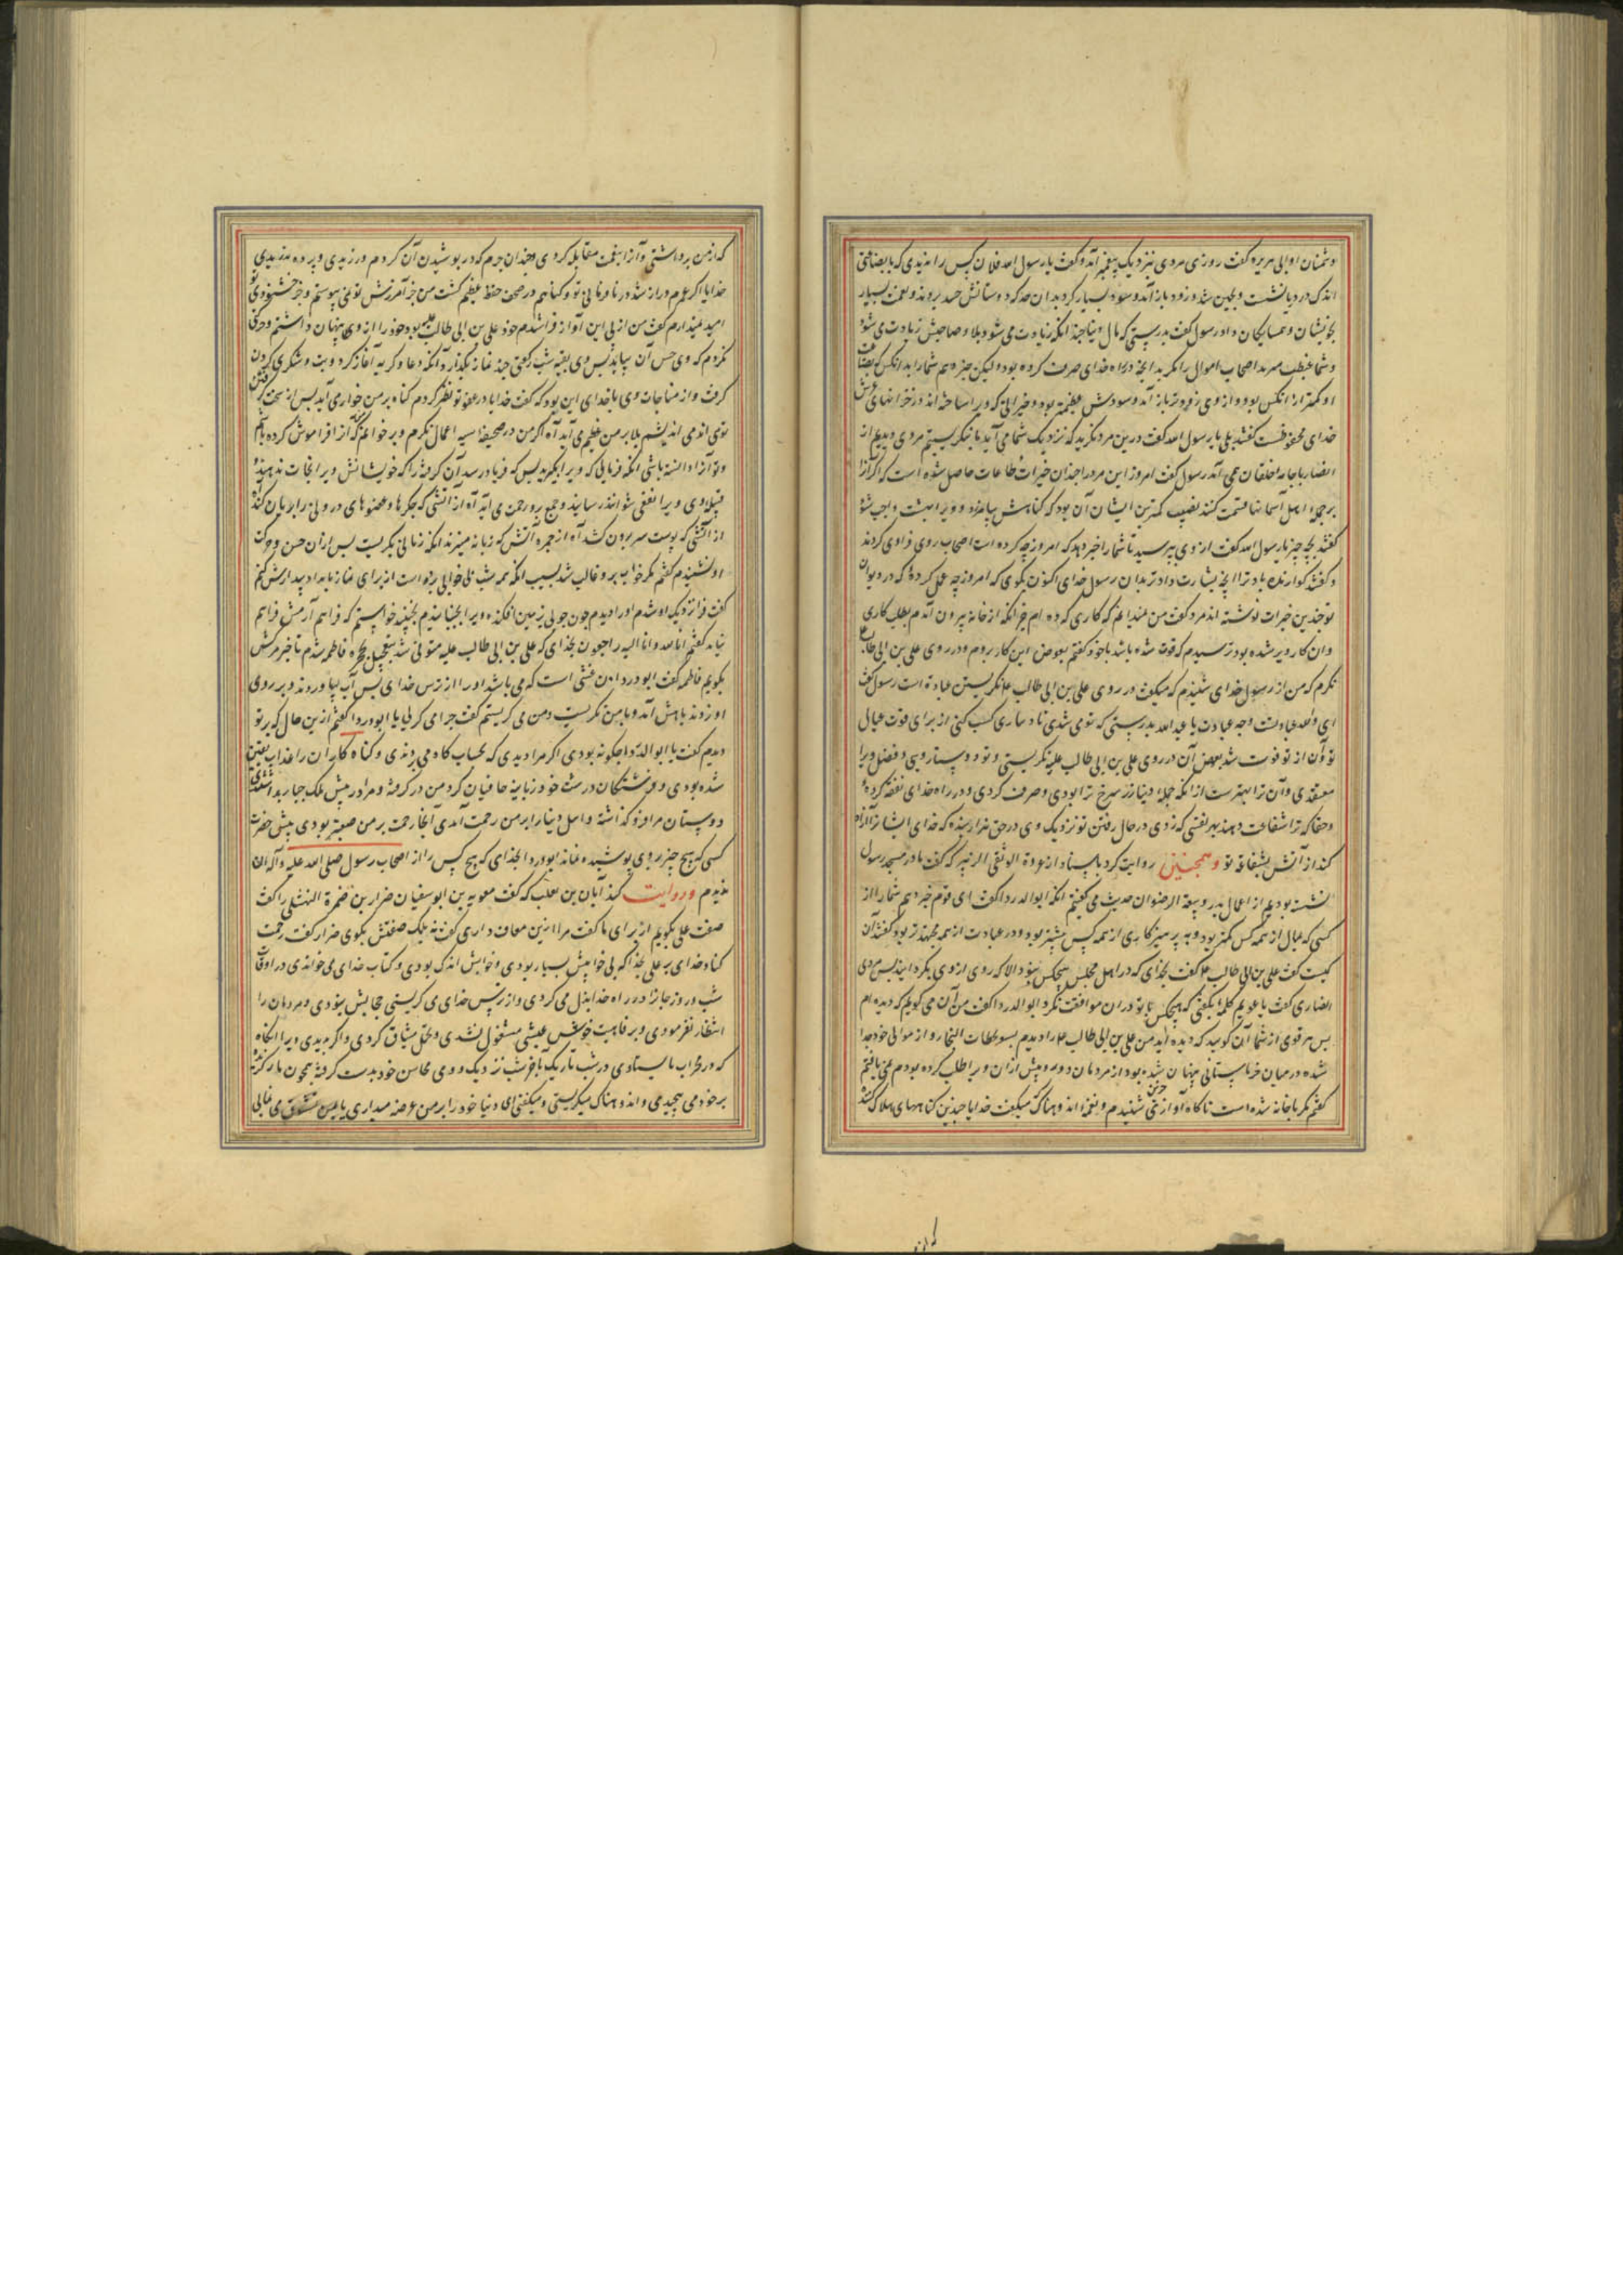 دشمنان او ابی هریره گفت روزی مردی بنزدیک پیغمبر آمد و گفت یا رسول الله فلان کس را ندیدی که با بضاعتی
اندک در دریا نشست و بچین شد و زود باز آمد و سود بسیار کرد بدان حد که دوستانش حسد بروند و نعمت بسیار
بخویشان و همسایگان داد رسول گفت بدرستی که مال دنیا چندانکه زیادت می شود بلا و صاحبش زیادت می شود
و شما غبطت مبرید اصحاب اموال را مگر بدانچه در راه خدای صرف کرده بود ولیکن خبر دهم شما را بدانکس که بضاعت
او کمتر از آنکس بود و از وی زودتر باز آمد و سودش عظیمتر بود و خیراتی که ویرا ساخته اند در خزانهای عرش
خدای محفوظست گفتند بلی یا رسول الله گفت درین مرد نگرید که نزدیک شما می آید ما بنگریستیم مردی دیدیم از
انصار با جامه خلقان می آمد رسول گفت امروز این مرد را چندان خیرات و طاعات حاصل شده است که اگر آنرا
بر جمله اهل آسمانها قسمت کنند نصیب کمترین ایشان آن بود که گناهش بیامرزد و ویرا بهشت واجب شود
گفتند بچه چیز یا رسول الله گفت از وی بپرسید تا شما را خبر دهد که امروز چه کرده است اصحاب روی فراوی کردند
و گفتند گوارنده باد ترا آنچه بشارت داد ترا بدان رسول خدای اکنون بگوی که امروز چه عمل کرده که در دیوان
تو چندین خیرات نوشته اند مرد گفت من نمیدانم که کاری کرده ام جز آنکه از خانه بیرون آمدم بطلب کاری
و آن کار دیر شده بود ترسیدم که فوت شده باشد با خود گفتم بعوض این کار بروم و در روی علی بن ابی طالب
نگرم که من از رسول خدای شنیدم که میگفت در روی علی بن ابی طالب ع نگریستن عبادة است رسول گفت
ای والله عبادت و چه عبادت یا عبد الله بدرستی که تو می شدی تا دیناری کسب کنی از برای قوت عیال
تو و آن از تو فوت شد بعوض آن در روی علی بن ابی طالب علیه نگریستی و تو دوستار ویی و فضل ویرا
معتقدی و آن ترا بهترست از آنکه جمله دنیا زر سرخ ترا بودی و صرف کردی و در راه خدای نفقه کرده
و حقا که ترا شفاعت دهند بهر نفسی که زدی در حال رفتن تو نزدیک وی در حق هزار بنده که خدای ایشانرا آزاد
کند از آتش بشفاعة تو وهمچنین روایت کرد باسناد از عروة الوثقی الزبیر که گفت ما در مسجد رسول
نشسته بودیم از اعمال بدر و بیعة الرضوان حدیث می گفتیم آنکه ابوالدردا گفت ای قوم خبر دهم شما را از
کسی که مال از همه کس کمتر بود و به پرهیزکاری از همه کس بیشتر بود و در عبادت از همه مجتهدتر بود گفتند آن
کیست گفت علی بن ابی طالب ع گفت بخدای که در اهل مجلس هیچکس نبود الا که روی از وی بگردانید پس مردی
انصاری گفت یا عویمر کلمه بگفتی که هیچکس با تو در آن موافقت نکرد ابوالدردا گفت من آن می گویم که دیده ام
پس هر قوی از شما آن گویید که دیده اید من علی بن ابی طالب ع را دیدم بسویحات النجار و از موالی خود جدا
شده در میان خرماستانی پنهان شده بود از مردمان دور و پیش از آن ویرا طلب کرده بودم نمی یافتم
گفتم مگر با خانه شده است ناگاه آواز حزین شنیدم و نغمه اندوهناک میگفت خدایا چندین گناههای هلاک کننده
که از من برداشتی و آنرا بنعمت مقابله کردی و چندان جرم که در پوشیدن آن کرم ورزیدی و پرده ندریدی
خدایا اگر عمرم دراز شد در نافرمانی تو و گناهم در صحف حفظ عظیم گشت من جز آمرزش تو نمی پیوستم و جز خشنودی تو
امید نمیدارم گفت من از پی این آواز فرا شدم خود علی بن ابی طالب علیه بود خود را از وی پنهان داشتم و حرکتی
نکردم که وی حس آن بیابد پس وی بقیه شب رکعتی چند نماز بگذارد آنگه دعا و گریه آغاز کرد و بث و شکوی کردن
گرفت و از مناجات وی با خدای این بود که گفت خدایا در عفو تو نظر کردم گناه بر من خوار می آید پس از سخت گرفتن
توی اندمی اندیشم بلا بر من عظیم می آید آه اگر من در صحیفه سیه اعمال نگرم و بر خوانم گناهی که از افراموش کرده باشم
و تو آنرا دانسته باشی آنگه فرمایی که ویرا بگیرید پس که فریاد رسد آن گرفته را که خویشانش ویرا نجات ندهند
قبیله وی ویرا نفعی نتوانند رسانید و جمع بر و رحمت می آید آه از آتشی که جگرها و عضوهای درونی را بریان کند
از آتشی که پوست سر برون کشد آه از جمره آتش که زبانه میزند آنگه زمانی بگریست پس از آن حس و حرکت
او نشنیدم گفتم مگر خواب برو غالب شد بسبب آنکه همه شب بی خوابی برده است از برای نماز بامداد بیدارش کنم
گفت فرا نزدیک او شدم او را دیدم چون چوبی بزمین افکنده ویرا بجنبانیدم بجنبید خواستم که فراهم آرمش فراهم
نیامد گفتم انا لله و انا الیه راجعون بخدای که علی بن ابی طالب علیه متوفی شد بتعجیل بحجره فاطمه شدم تا خبر مرگش
بگویم فاطمه گفت ابو دردا این غشی است که می باشد او را از ترس خدای پس آب بیاوردند و بر روی
او زدند باهش آمد و بامن نگریست و من می گریستم گفت چرا می گریی یا ابودردا گفتم ازین حال که بر تو
دیدم گفت یا ابوالدردا چگونه بودی اگر مرا دیدی که بحساب گاه می بردندی و گناه کاران را عذاب یقین
شده بودی و فرشتگان درشت خو و زبانیه حافیان گرد من در گرفته و مرا در پیش ملک جبار بداشته
دوستان مرا فرو گذاشته و اهل دنیا را بر من رحمت آمدی آنجا رحمت بر من صعبتر بودی پیش حضرت
کسی که هیچ چیز بروی پوشیده نماند ابودردا بخدای که هیچ کس را از اصحاب رسول صلی الله علیه و آله آن
ندیدم وروایت کند آبان بن تغلب که گفت معویه بن ابوسفیان ضرار بن ضمرة النهشلی را گفت
صفت علی بگویم از برای ما گفت مرا ازین معاف داری گفت نه بلک صفتش بگوی ضرار گفت رحمت
کناد خدای بر علی بخدا که بی خوابیش بسیار بودی و خوابش اندک بودی و کتاب خدای می خواندی در اوقات
شب و روز جان در راه خدا بذل می کردی و از ترس خدای می گریستی حجابش نبودی و مردمان را
انتظار نفرمودی و بر فاهیت خوش عیشی مشغول نشدی و تحمل مشاق کردی و اگر بدیدی ویرا آنگاه
که در محراب بایستادی در شب تاریک آفرشب نزدیک و وی محاسن خود بدست گرفته همچون مار گزیده
بر خود می پیچیدی و اندوهناک میگریستی و میگفتی ای دنیا خود را بر من عرضه میداری یا بمن تشوق می نمایی